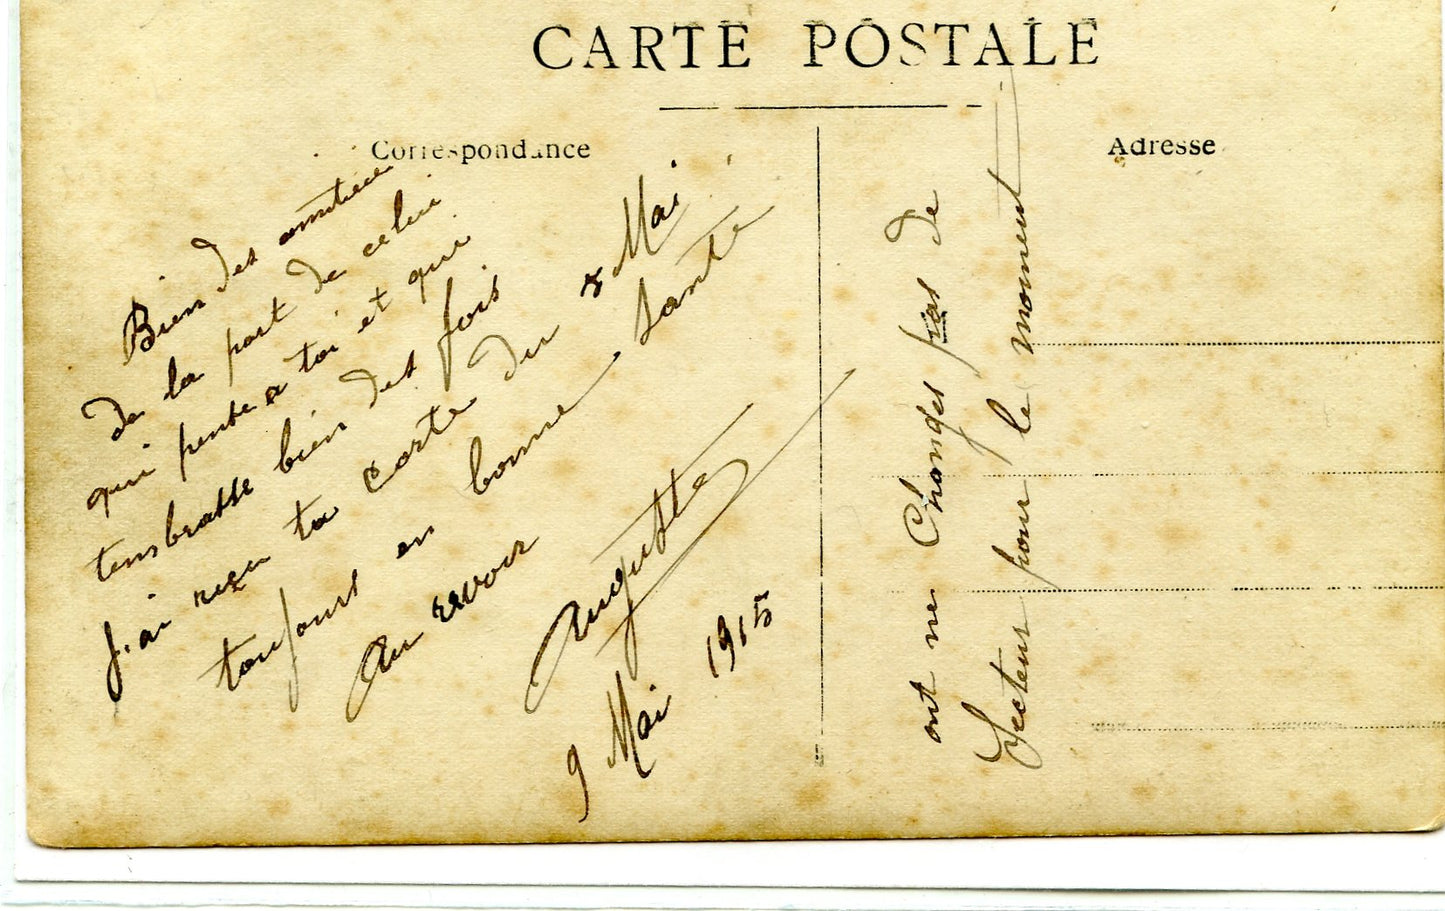 CARTE POSTALE
Correspondance
Adresse
Bien des amitiées
de la part de celui
qui pense a toi et qui
tensbrasse bien des fois
J.ai reçu ta carte du 8 Mai
toujours en bonne santé
Au revoir
Auguste
9 Mai 1915
ont ne Changes pas de
Secteur pour le moment